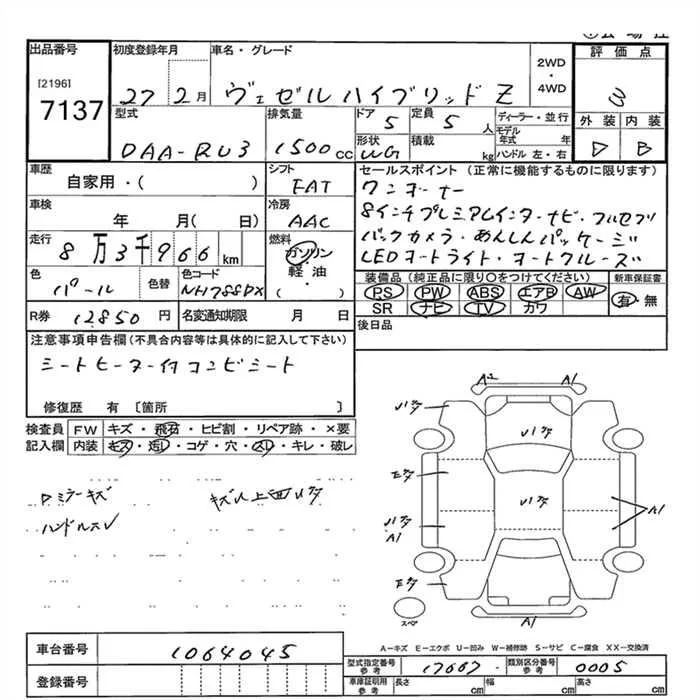 出品番号
[2196]
7137
初度登録年月
27 2月
車名・グレード
ヴェゼルハイブリッドZ
2WD
・
4WD
評価点
3
型式
DAA-RU3
排気量
1500cc
ドア
5
定員
5人
ディーラー・並行
モデル年式 年
形状
WG
積載 kg
ハンドル 左・右
外装 内装
車歴
自家用・( )
シフト
FAT
セールスポイント(正常に機能するものに限ります)
ワンオーナー
8インチプレミアムインターナビ・フルセグ
バックカメラ・あんしんパッケージ
LEDオートライト・オートクルーズ
車検
年 月( 日)
冷房
AAC
走行
8万3千966km
燃料
ガソリン
・
軽油
( )
色
パール
色替
色コード
NH788PX
装備品(純正品に限り○をつけてください)
PS PW ABS エアB AW
SR ナビ TV カワ
新車保証書
有・無
R券
12850円
名変通知期限 月 日
後日品
注意事項申告欄(不具合内容等は具体的に記入して下さい)
シートヒーター付コンビシート
修復歴 有〔箇所 〕
検査員記入欄
FW キズ・飛石・ヒビ割・リペア跡・×要
内装 キズ・汚レ・コゲ・穴・スレ・キレ・破レ
ミラーキズ
ハンドルスレ
A2 A1
A1
A1
A1
スペ
A-キズ E-エクボ U-凹み W-補修跡 S-サビ C-腐食 XX-交換済
車台番号
1064045
登録番号
型式指定番号
参考
17667
類別区分番号
参考
0005
車庫証明用
参考
長さ cm
幅 cm
高さ cm